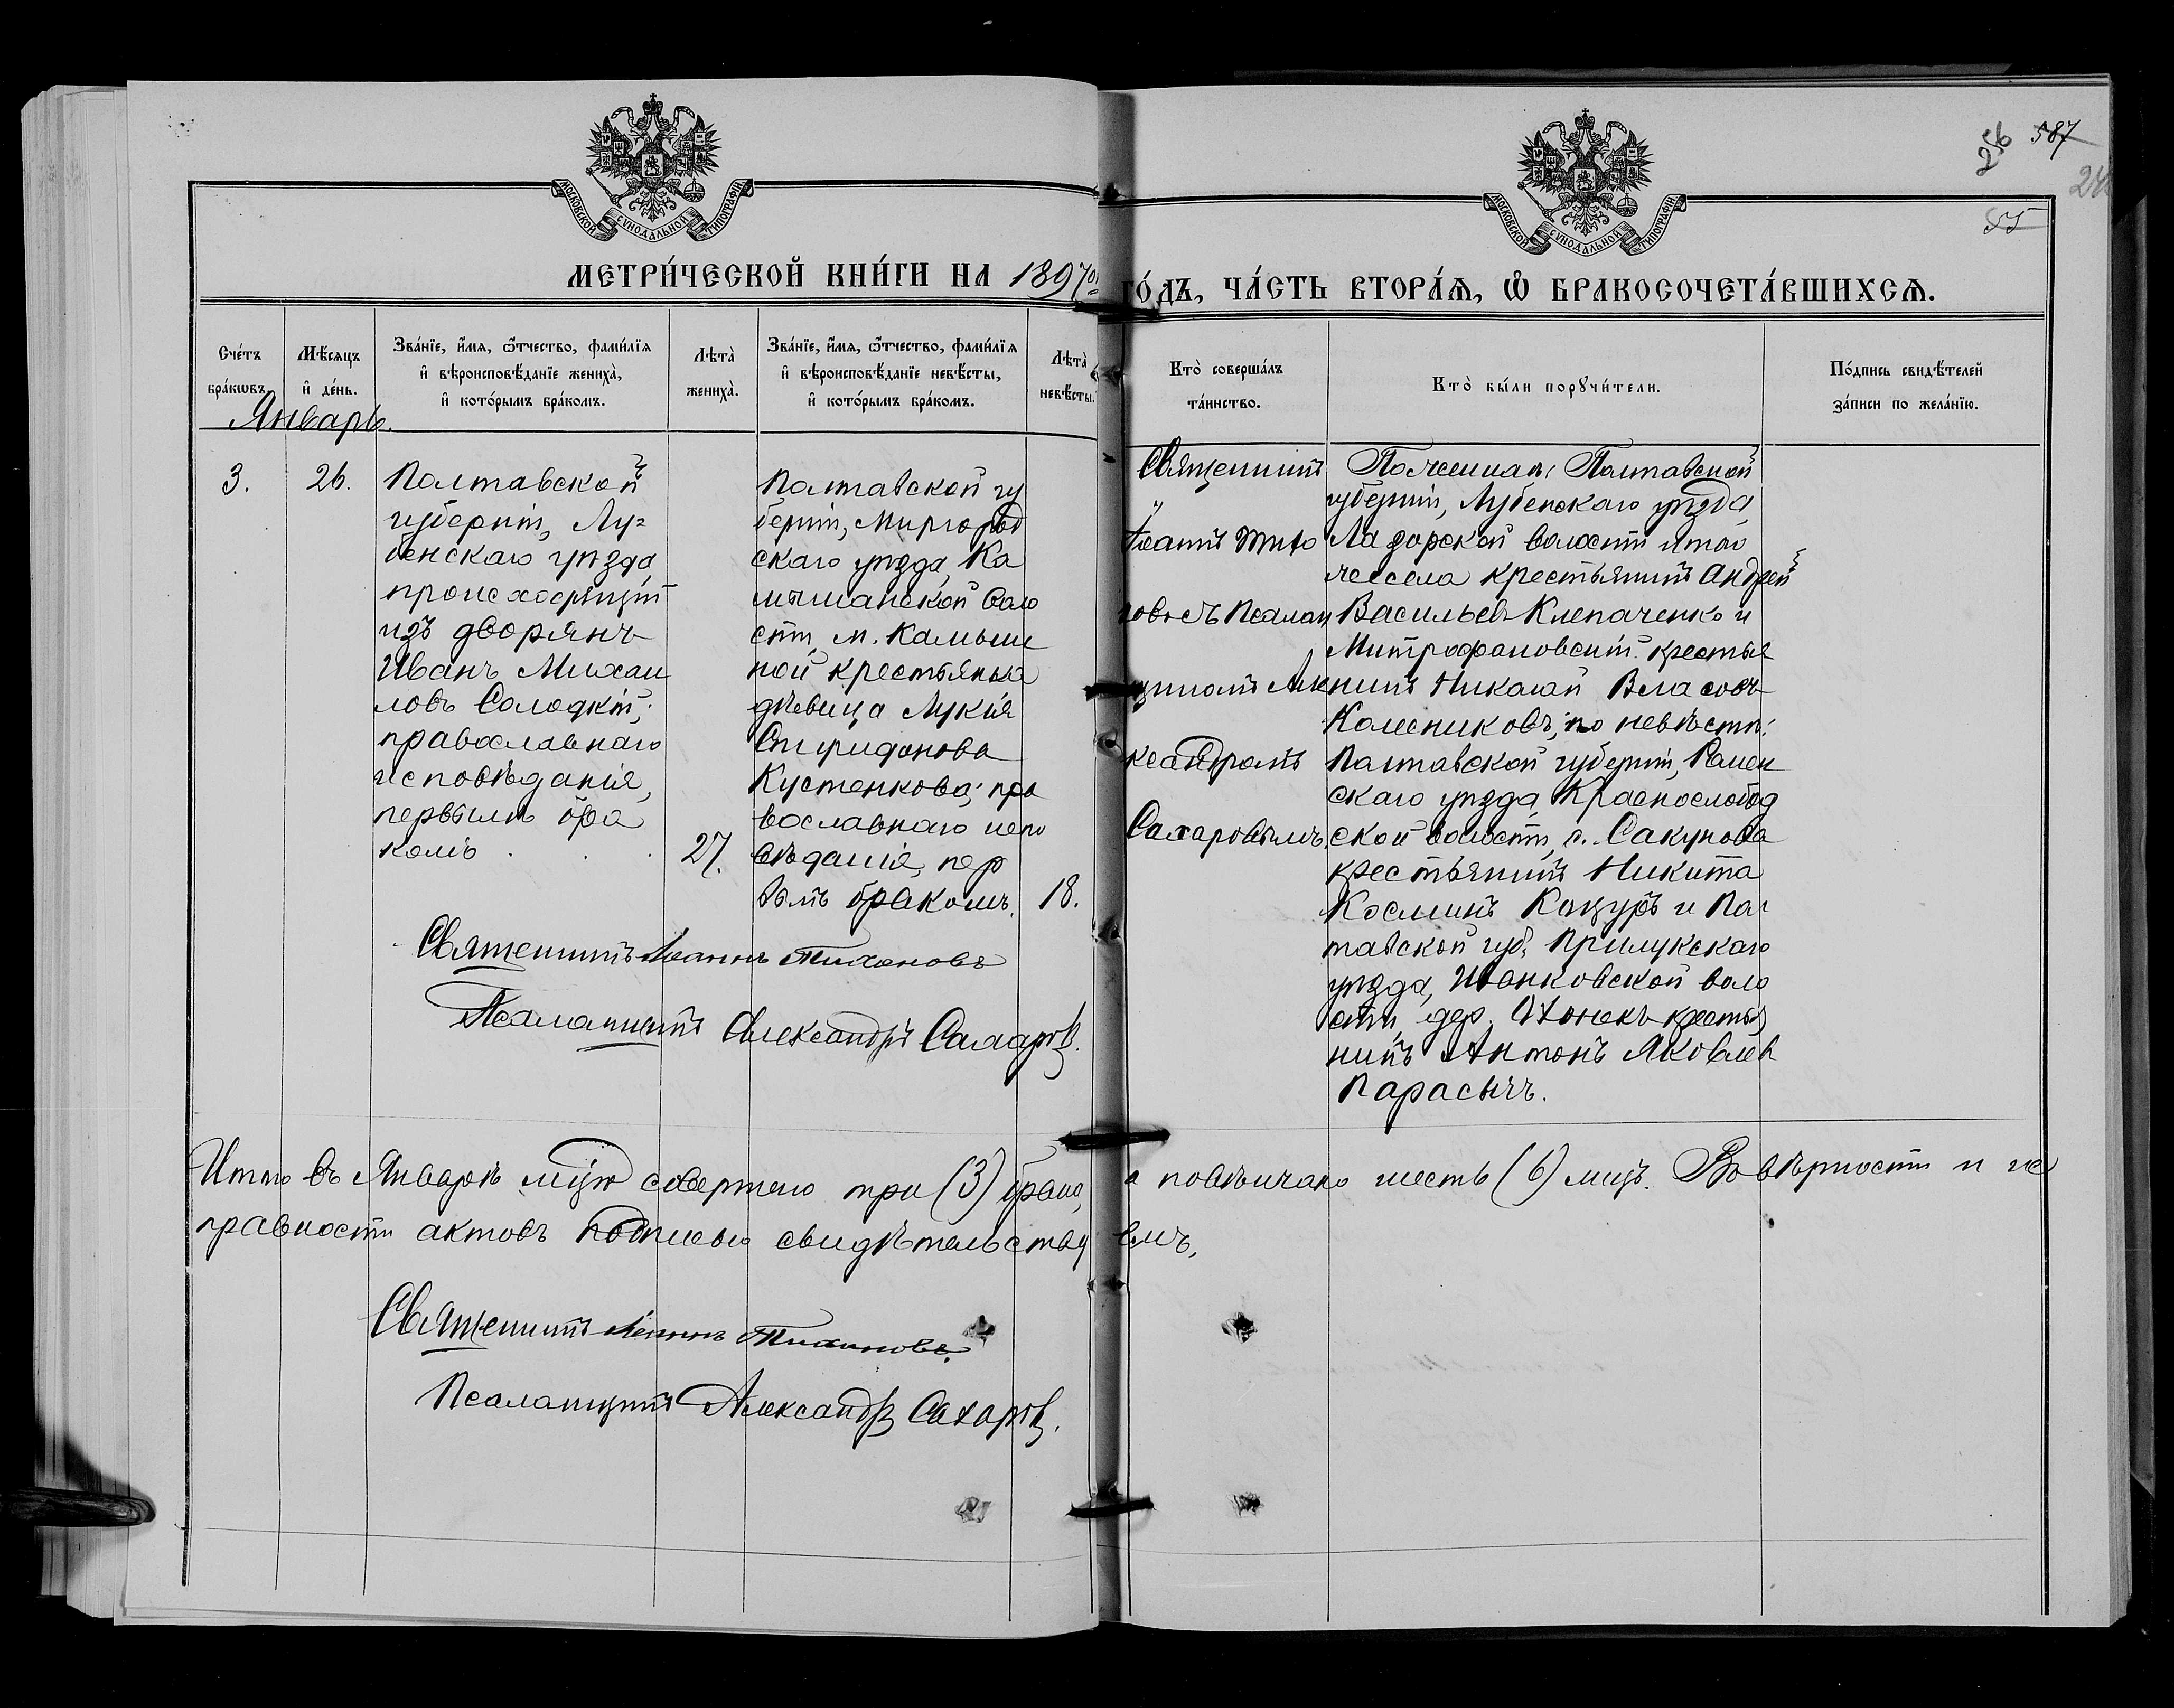 256 587
24
55
МОСКОВСКОЙ СУНОДАЛЬНОЙ ТИПОГРАФІИ
МОСКОВСКОЙ СУНОДАЛЬНОЙ ТИПОГРАФІИ
МЕТРИ́ЧЕСКОЙ КНИ́ГИ НА 1897 ГО́ДЪ, ЧА́СТЬ ВТОРА́Ѧ, Ѽ БРАКОСОЧЕТА́ВШИХСѦ.
Сче́тъ
бра́кѡвъ.
Мѣ́сяцъ
и҆ де́нь.
Зва́нїе, и҆́мя, ѻ҆́тчество, фами́лїя
и҆ вѣроисповѣ́данїе жениха̀,
и҆ кото́рымъ бра́комъ.
Лѣта̀
жениха̀.
Зва́нїе, и҆́мя, ѻ҆́тчество, фами́лїя
и҆ вѣроисповѣ́данїе невѣ́сты,
и҆ кото́рымъ бра́комъ.
Лѣта̀
невѣ́сты.
Кто̀ соверша́лъ
та́инство.
Кто̀ бы́ли порꙋчи́тели.
По́дпись свидѣ́телей
за́писи по жела́нїю.
Январь.
3.
26.
Полтавской
губерніи, Лу=
бенскаго уѣзда,
происходящій
изъ дворянъ
Иванъ Михаи
ловъ Солодкій;
православнаго
исповѣданія,
первымъ бра
комъ . . .
27.
Полтавской гу
берніи, Миргород
скаго уѣзда, Ка
мышанской воло
сти, м. Камыш
ной крестьянка
дѣвица Лукія
Спиридонова
Кустенкова; пра
вославнаго испо
вѣданія, пер
вымъ бракомъ.
18.
Священникъ Іоаннъ Тихоновъ
Псаломщикъ Александръ Сахаровъ.
Священникъ
Іоаннъ Тихо
новъ съ Псалом
щикомъ Але
ксандромъ
Сахаровымъ.
По женихѣ: Полтавской
губерніи, Лубенскаго уѣзда,
волости того
же села крестьянинъ Андрей
Васильевъ Клепаченко и
крестья
нинъ Николай Власовъ
Колесниковъ; по невѣстѣ:
Полтавской губерніи, Ромен
скаго уѣзда, Краснослобод
ской волости, с. Сакунова
крестьянинъ Никита
Косминъ Коцуръ и Пол
тавской губ. Прилукскаго
уѣзда, Иванковской воло
сти, дер. крестья
нинъ Антонъ Яковлев
Парасычъ.
Итого въ Январѣ мцѣ совершено три (3) брака, а повѣнчано шесть (6) лицъ. Въ вѣрности и ис
правности актовъ подписью свидѣтельствуемъ,
Священникъ Іоаннъ Тихоновъ.
Псаломщикъ Александръ Сахаровъ.